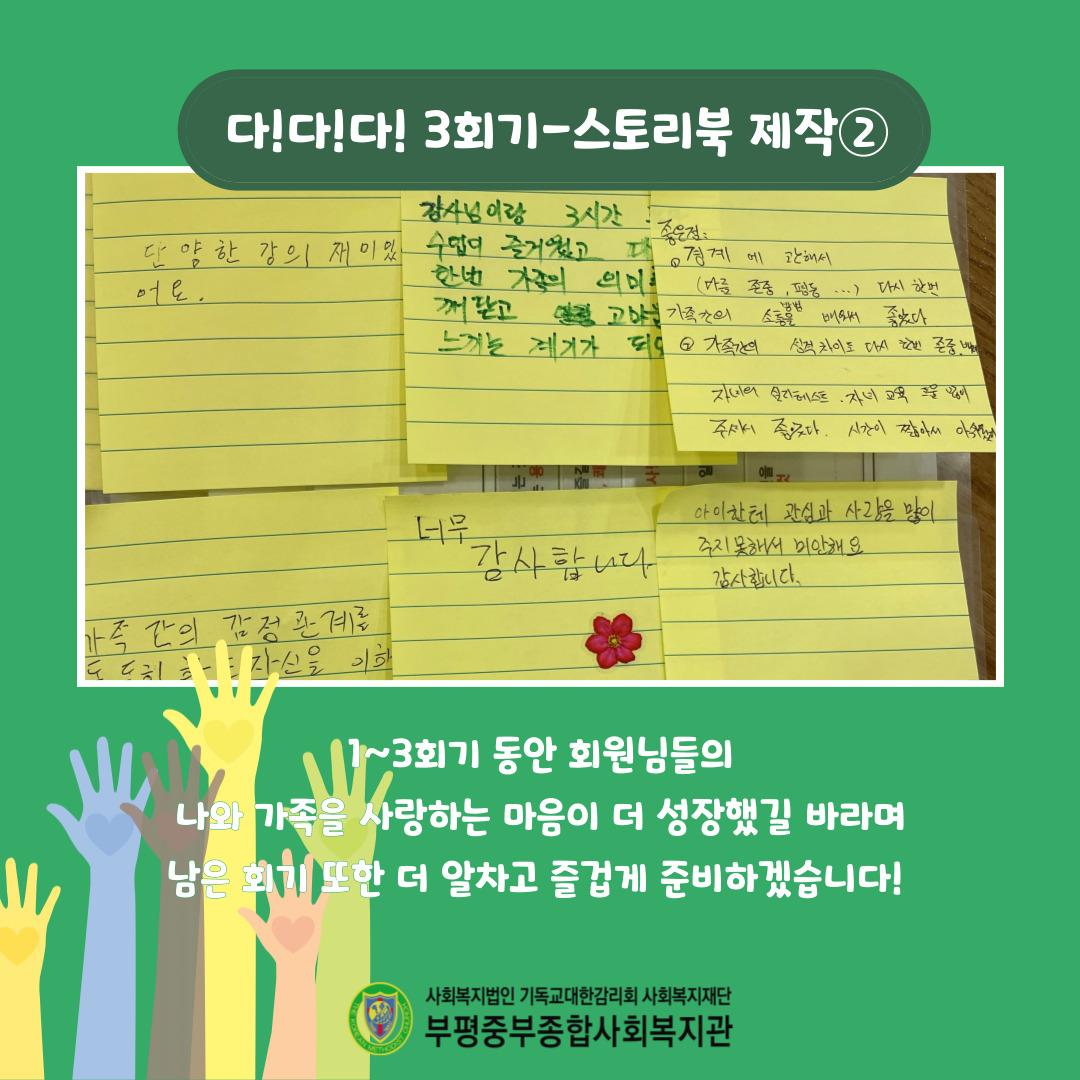 다!다!다! 3회기-스토리북 제작②
단양한 강의 재미있
어요.
강사님이랑 3시간
수업이 즐거웠고 다
한번 가족의 의미
깨닫고 고마
느끼는 계기가 되
좋은점:
①경계에 관해서
(다름 존중, 평등 ...) 다시 한번
가족간의 소통방법을 배워서 좋았다
② 가족간의 성격차이도 다시 한번 존중,
자녀의 심리테스트. 자녀 교육 많이
주셔서 좋았다. 시간이 짧아서
가족 간의 감정 관계를
자신을 이해
너무
감사합니다.
아이한테 관심과 사랑을 많이
주지못해서 미안해요
감사합니다.
1~3회기 동안 회원님들의
나와 가족을 사랑하는 마음이 더 성장했길 바라며
남은 회기 또한 더 알차고 즐겁게 준비하겠습니다!
사회복지법인 기독교대한감리회 사회복지재단
부평중부종합사회복지관